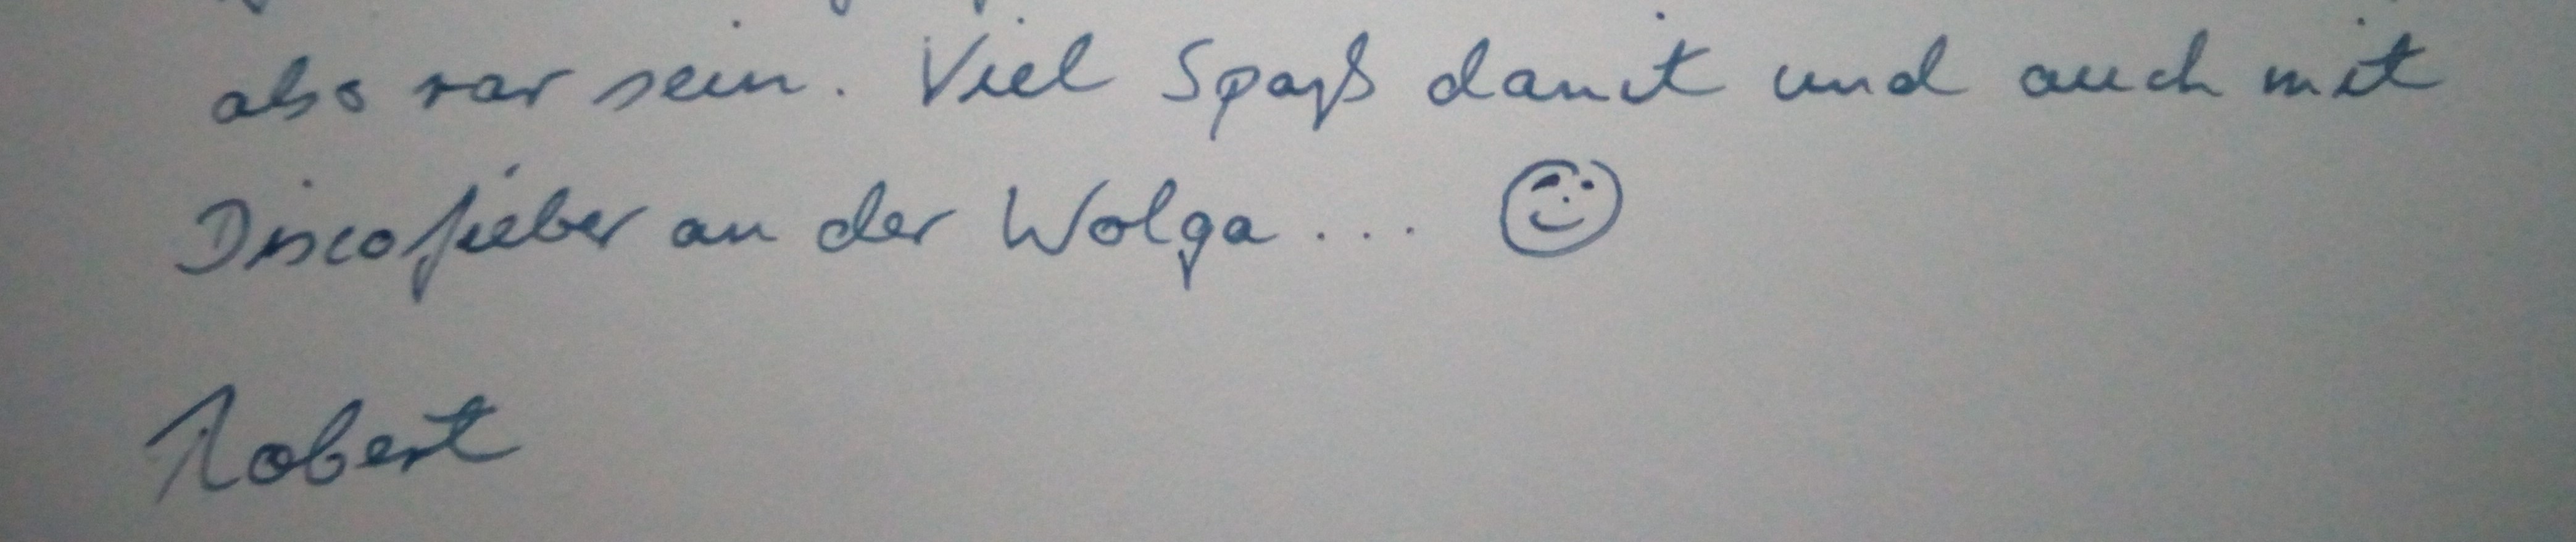 also rar sein. Viel Spaß damit und auch mit
Discofieber an der Wolga ... ☺
Robert